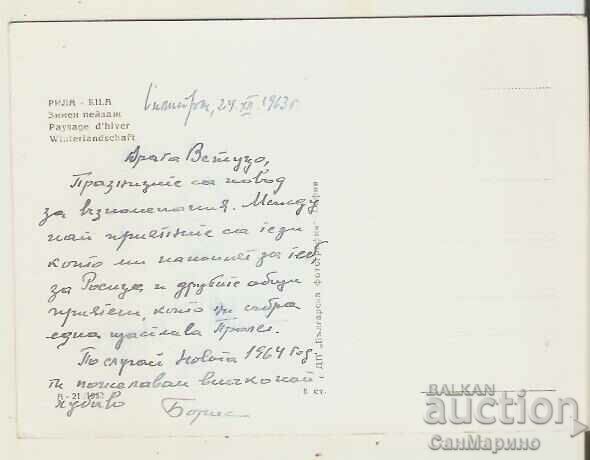 РИЛА - RILA
Зимен пейзаж
Paysage d'hiver
Winterlandschaft
24 XII 1963 г
Драга Ветуцо,
Празниците са повод
за възпоменания. Между
най приятните са тези
които ми напомнят за теб,
за Росица и другите общи
приятели, които ни събра
една щастлива Пролет.
По случай Новата 1964 год
ти пожелавам всичко най
хубаво Борис
ДП „Българска фотография" София
BALKAN
auction
СанМарино